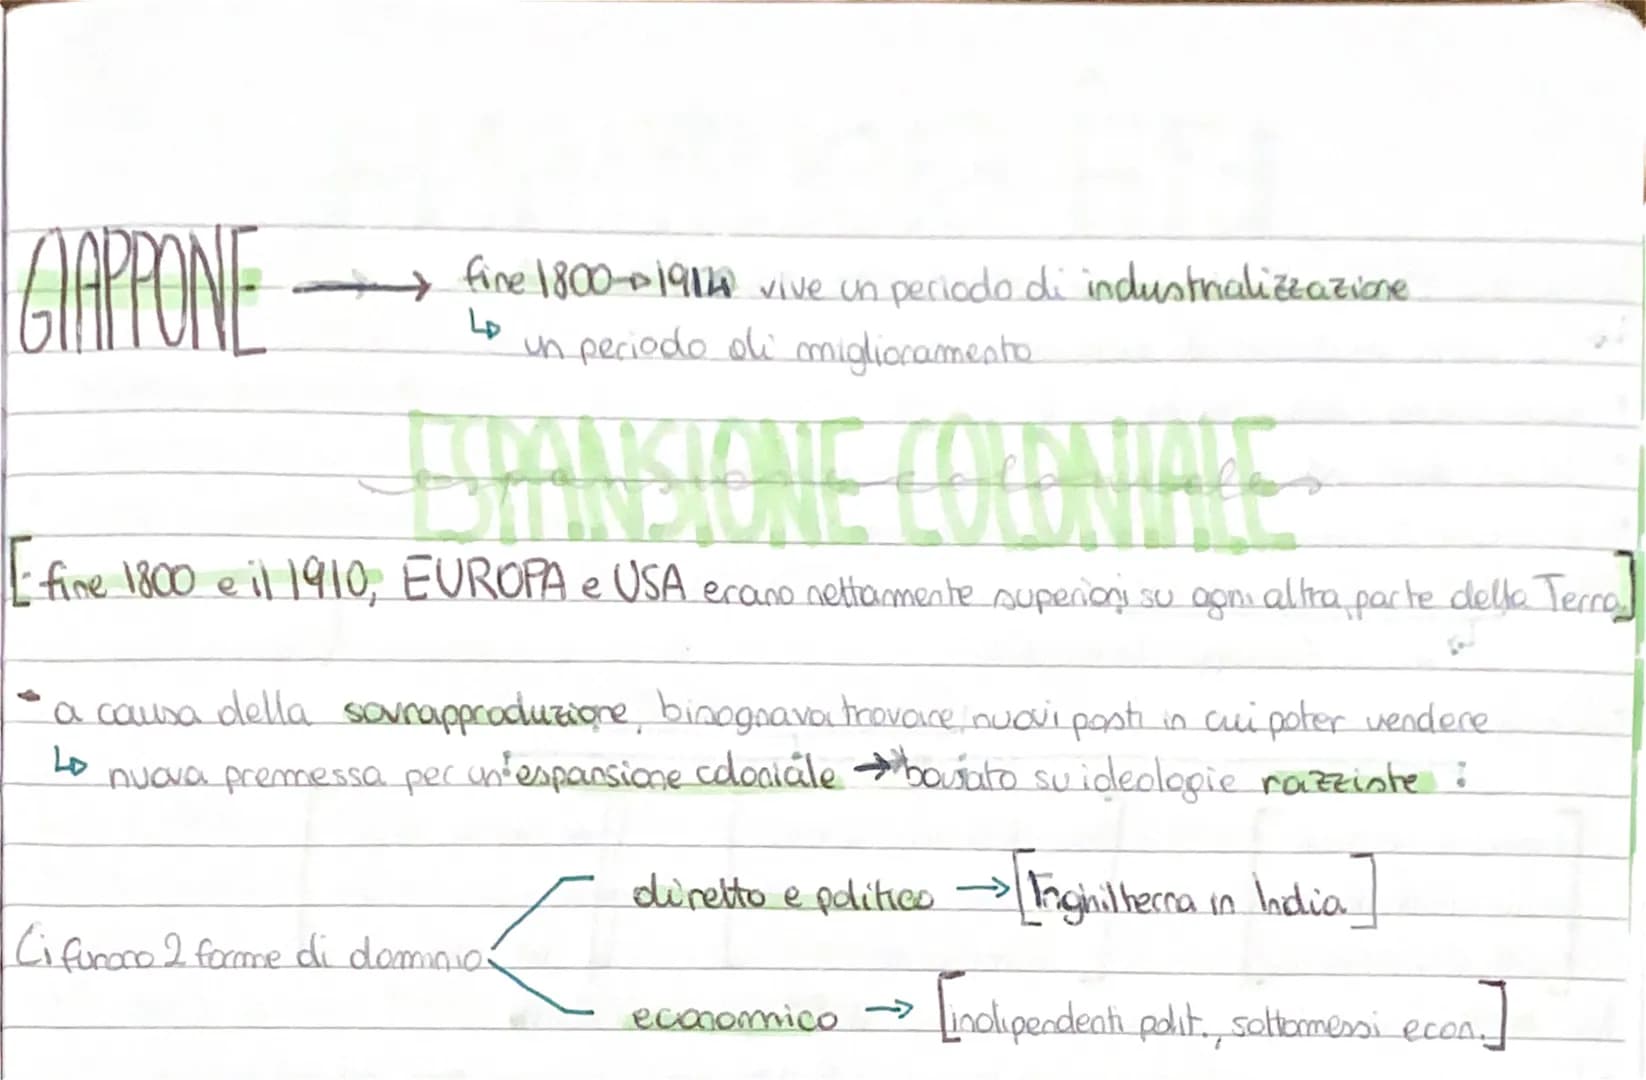 GIAPPONE → fine 1800→1914 vive un periodo di industrializzazione
↳ un periodo di miglioramento
ESPANSIONE COLONIALE
espansione coloniale
[- fine 1800 e il 1910, EUROPA e USA erano nettamente superiori su ogni altra parte della Terra]
- a causa della sovrapproduzione, bisognava trovare nuovi posti in cui poter vendere
↳ nuova premessa per un'espansione coloniale → basato su ideologie razziste :
diretto e politico → [Inghilterra in India]
Ci furono 2 forme di dominio
economico → [indipendenti polit., sottomessi econ.]